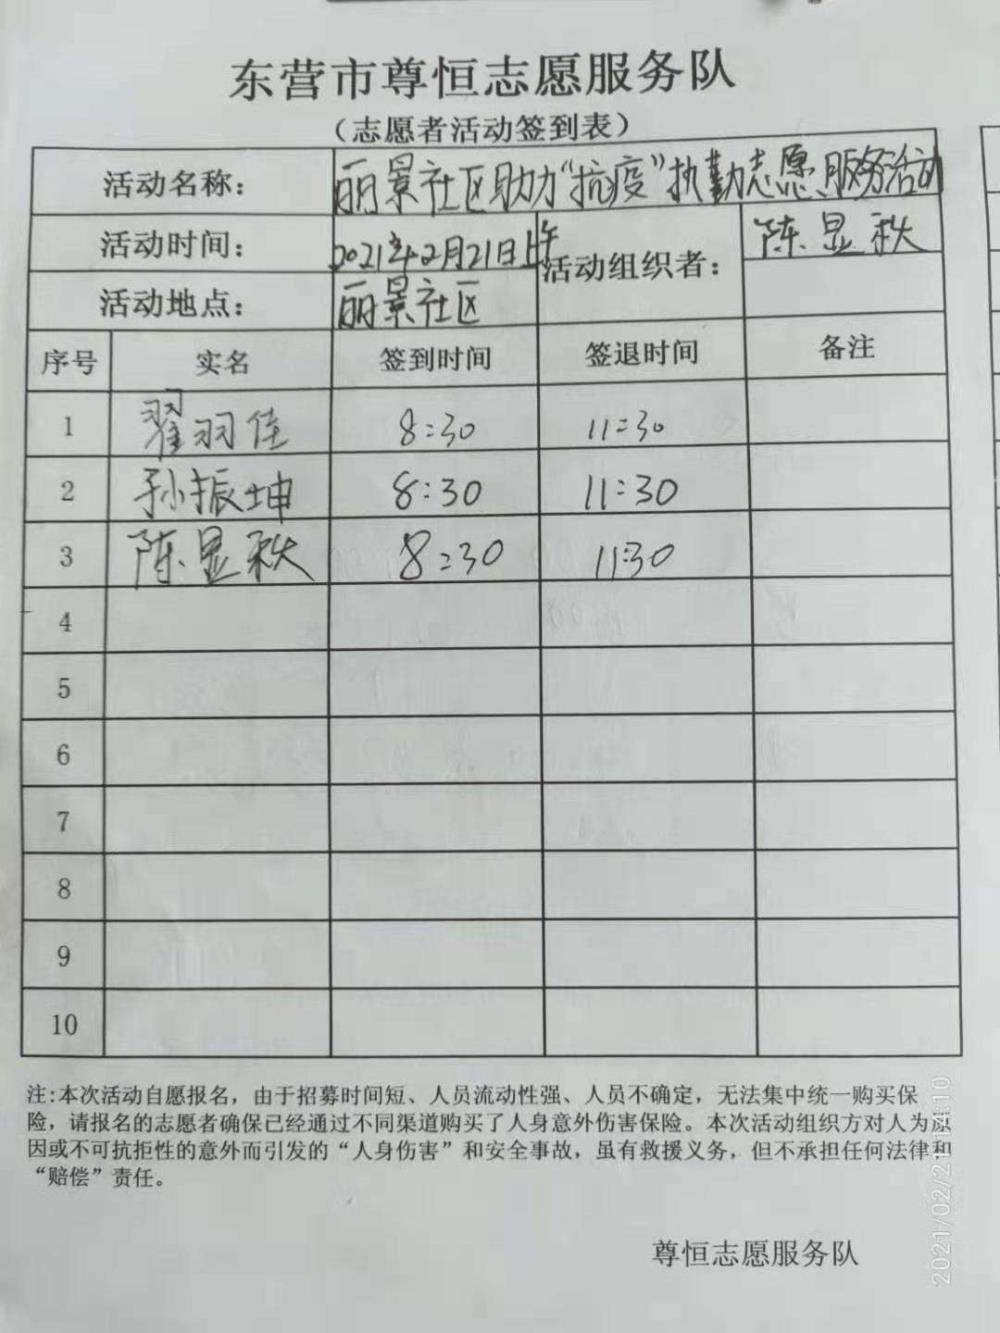 东营市尊恒志愿服务队
（志愿者活动签到表）
活动名称： 丽景社区助力“抗疫”执勤志愿服务活动
活动时间： 2021年2月21日上午 活动组织者： 陈显秩
活动地点： 丽景社区
序号 实名 签到时间 签退时间 备注
1 翟羽佳 8:30 11:30
2 孙振坤 8:30 11:30
3 陈显秩 8:30 11:30
4
5
6
7
8
9
10
注:本次活动自愿报名，由于招募时间短、人员流动性强、人员不确定，无法集中统一购买保
险，请报名的志愿者确保已经通过不同渠道购买了人身意外伤害保险。本次活动组织方对人为原
因或不可抗拒性的意外而引发的“人身伤害”和安全事故，虽有救援义务，但不承担任何法律和
“赔偿”责任。
尊恒志愿服务队